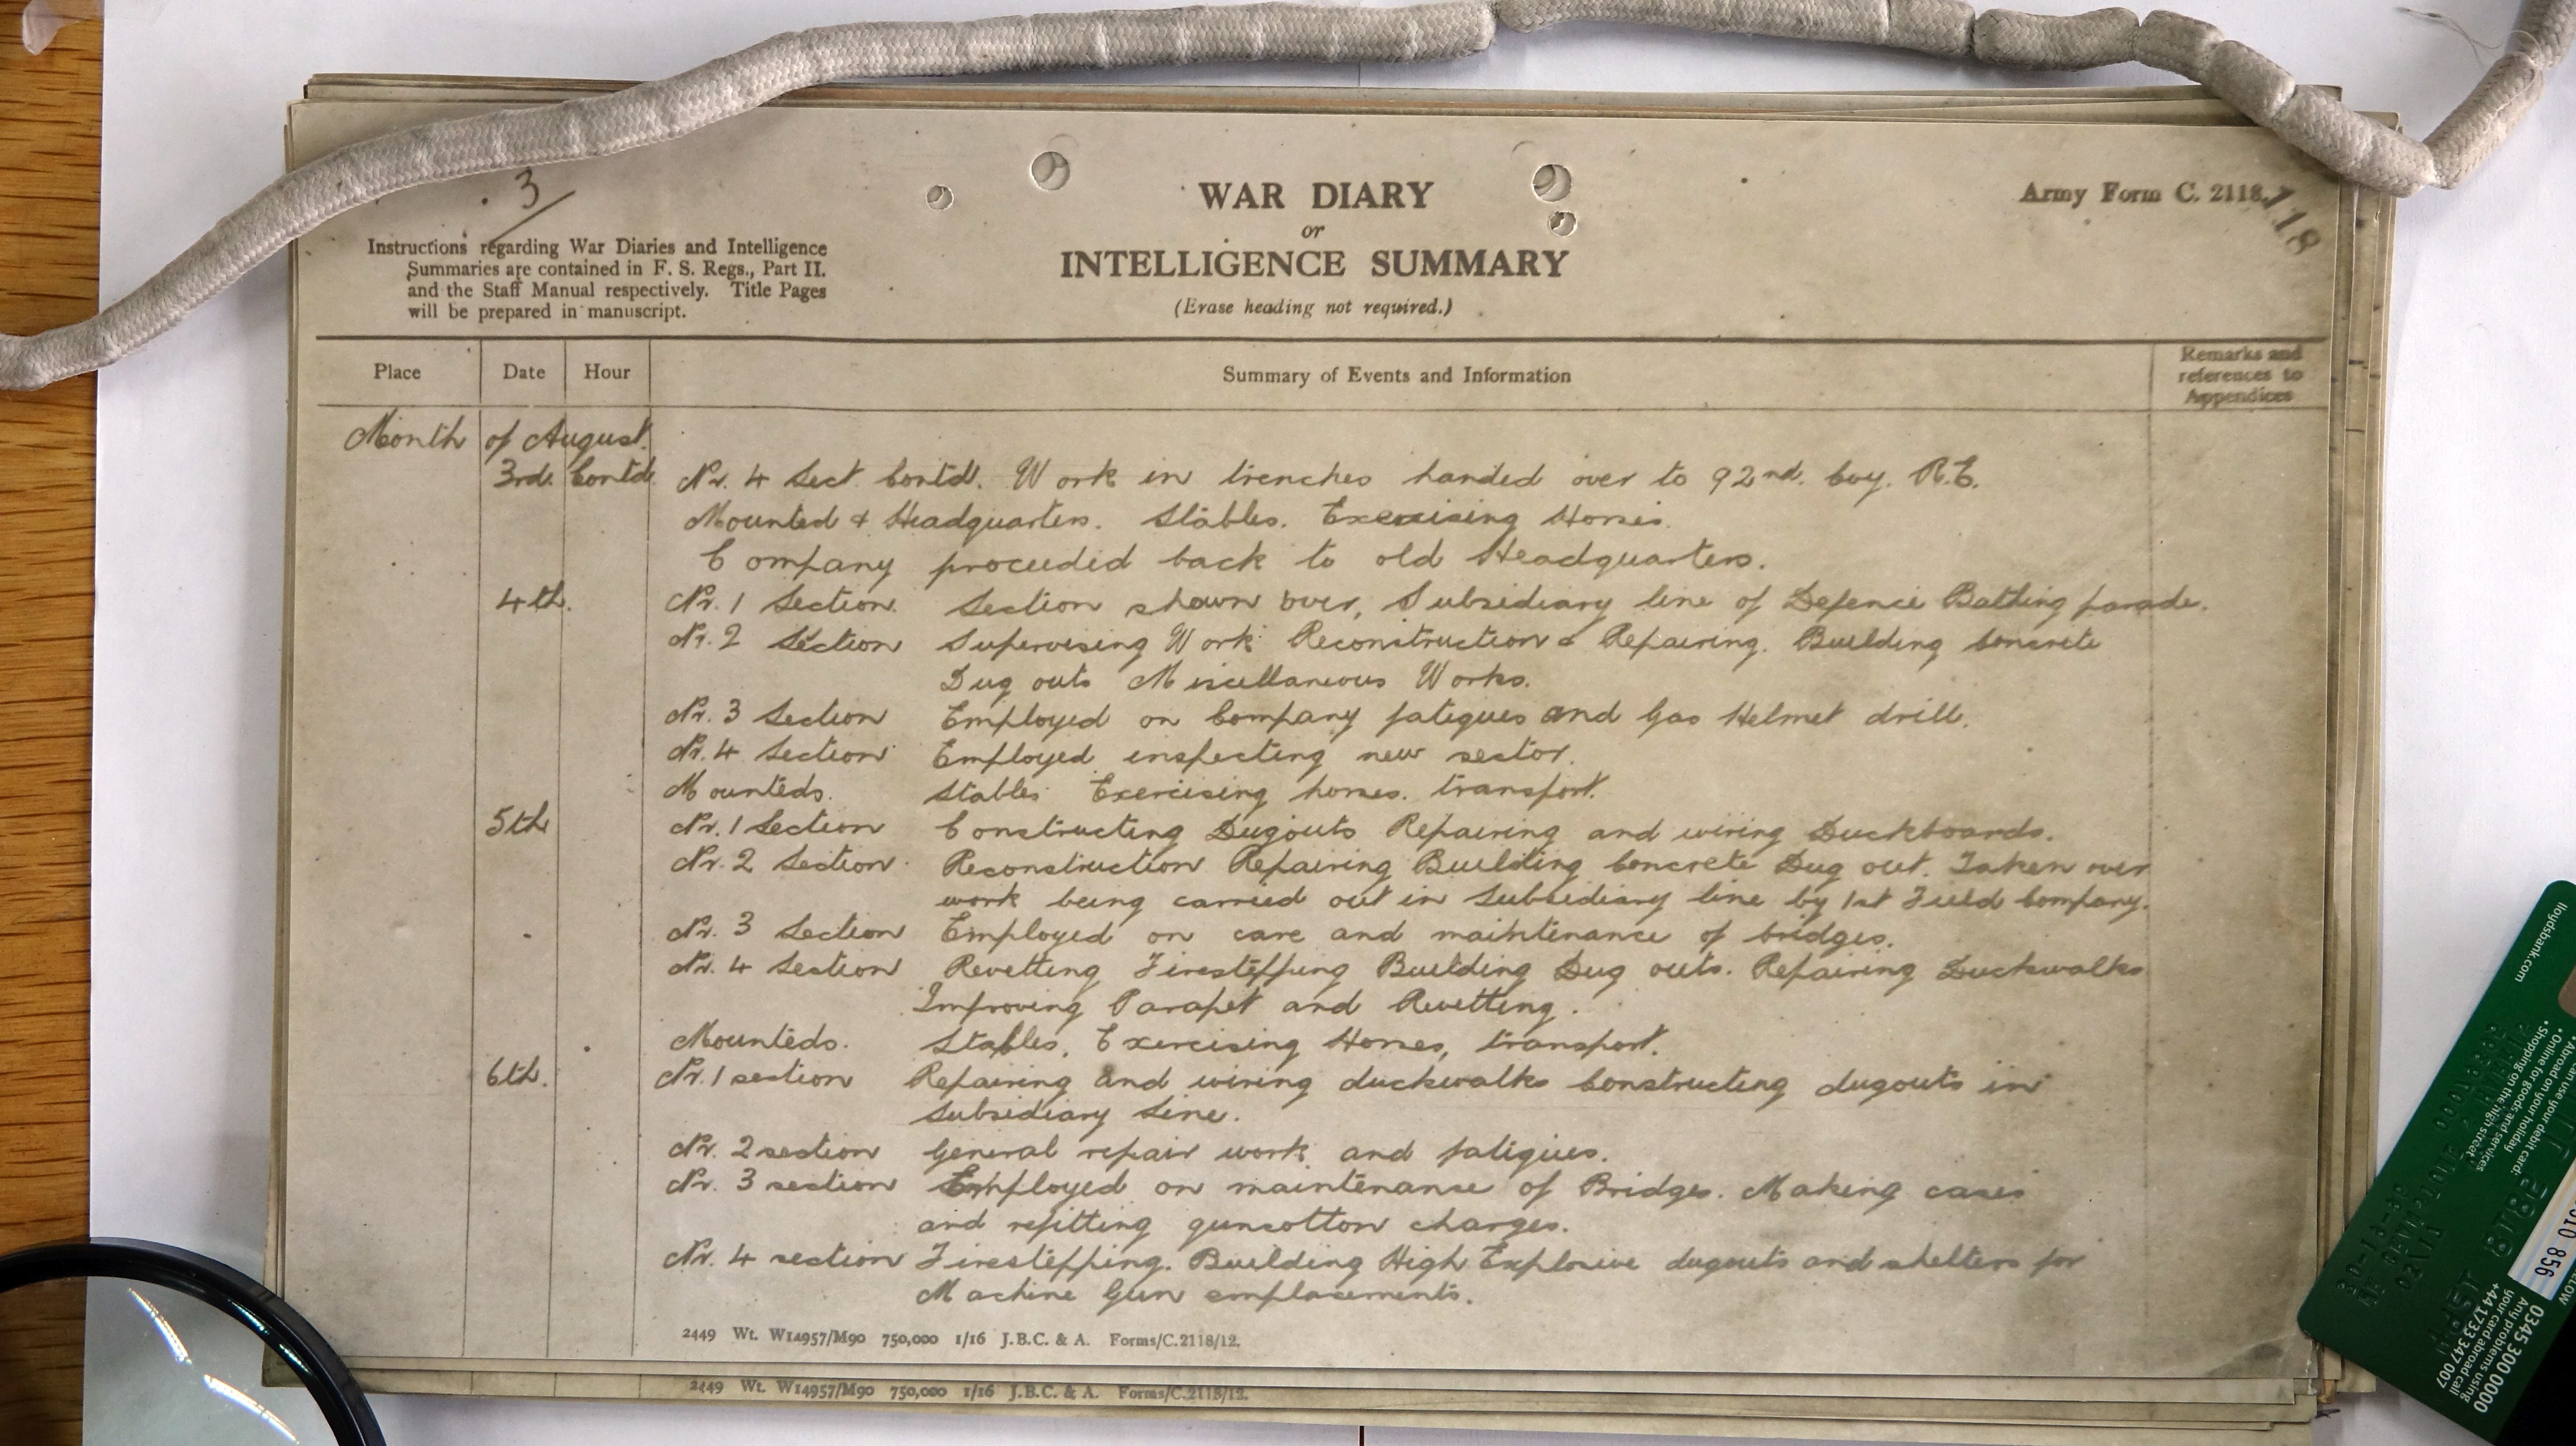 3
WAR DIARY
or
INTELLIGENCE SUMMARY
(Erase heading not required.)
Army Form C. 2118.
118
Instructions regarding War Diaries and Intelligence
Summaries are contained in F. S. Regs., Part II.
and the Staff Manual respectively. Title Pages
will be prepared in manuscript.
Place Date Hour Summary of Events and Information Remarks and references to Appendices
Month of August.
3rd. Contd. Nr. 4 Sect. Contd. Work in trenches handed over to 92nd. Coy. R.E.
Mounted & Headquarters. Stables. Exercising Horses.
Company proceeded back to old Headquarters.
4th. Nr. 1 Section. Section shewn over, Subsidiary line of Defence Bathing parade.
Nr. 2 Section Supervising Work Reconstruction & Repairing. Building Concrete
Dug outs Miscellaneous Works.
Nr. 3 Section Employed on Company fatigues and Gas Helmet drill.
Nr. 4 Section Employed inspecting new sector.
Mounteds. Stables Exercising horses. transport.
5th Nr. 1 Section Constructing Dugouts Repairing and wiring Duckboards.
Nr. 2 Section Reconstruction Repairing Building Concrete Dug out. Taken over
work being carried out in Subsidiary line by 1st Field Company.
Nr. 3 Section Employed on care and maintenance of bridges.
Nr. 4 Section Revetting Firestepping Building Dug outs. Repairing Duckwalks
Improving Parapet and Revetting.
Mounteds. Stables, Exercising Horses, transport.
6th. Nr. 1 section Repairing and wiring duckwalks Constructing dugouts in
Subsidiary Line.
Nr. 2 section General repair work and fatigues.
Nr. 3 section Employed on maintenance of Bridges. Making cases
and refitting guncotton charges.
Nr. 4 section Firestepping. Building High Explosive dugouts and shelters for
Machine Gun emplacements.
2449 Wt. W14957/M90 750,000 1/16 J.B.C. & A. Forms/C.2118/12.
2449 Wt. W14957/M90 750,000 1/16 J.B.C. & A. Forms/C.2118/12.
lloydsbank.com